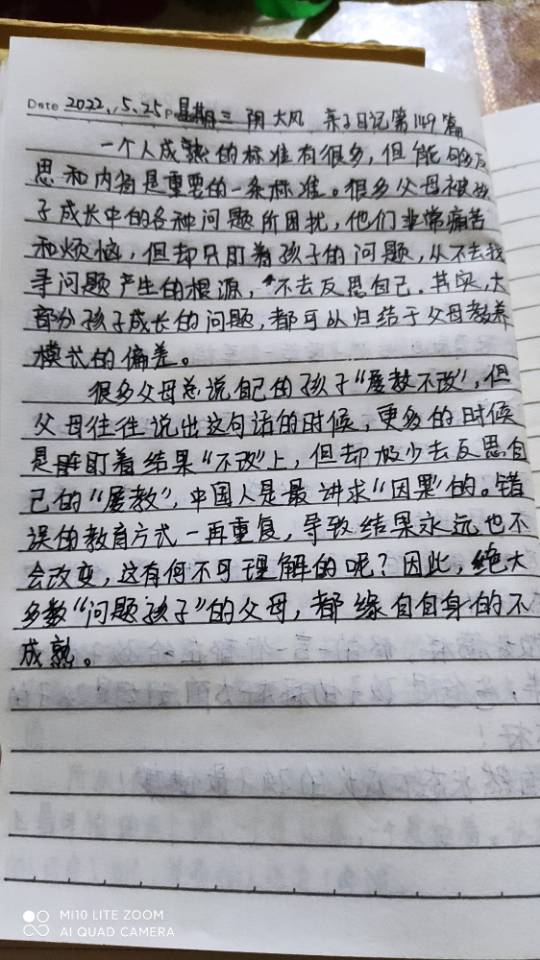 Date 2022.5.25 星期三 阴 大风 亲子日记第1149篇
一个人成熟的标准有很多,但能够反
思和内省是重要的一条标准。很多父母被孩
子成长中的各种问题所困扰,他们非常痛苦
和烦恼,但却只盯着孩子的问题,从不去找
寻问题产生的根源,不去反思自己.其实,大
部分孩子成长的问题,都可以归结于父母教养
模式的偏差。
很多父母总说自己的孩子“屡教不改”,但
父母往往说出这句话的时候,更多的时候
是盯着结果“不改”上,但却极少去反思自
己的“屡教”,中国人是最讲求“因果”的。错
误的教育方式一再重复,导致结果永远也不
会改变,这有何不可理解的呢?因此,绝大
多数“问题孩子”的父母,都缘自自身的不
成熟。
MI10 LITE ZOOM
AI QUAD CAMERA